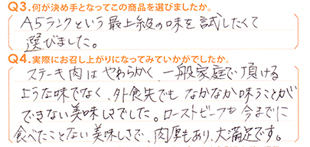 Q3.何が決め手となってこの商品を選びましたか。
A5ランクという最上級の味を試したくて
選びました。
Q4.実際にお召し上がりになってみていかがでしたか。
ステーキ肉はやわらかく、一般家庭で頂ける
ような味でなく、外食先でもなかなか味うことが
できない美味しさでした。ローストビーフも今までに
食べたことない美味しさで、肉厚もあり、大満足です。